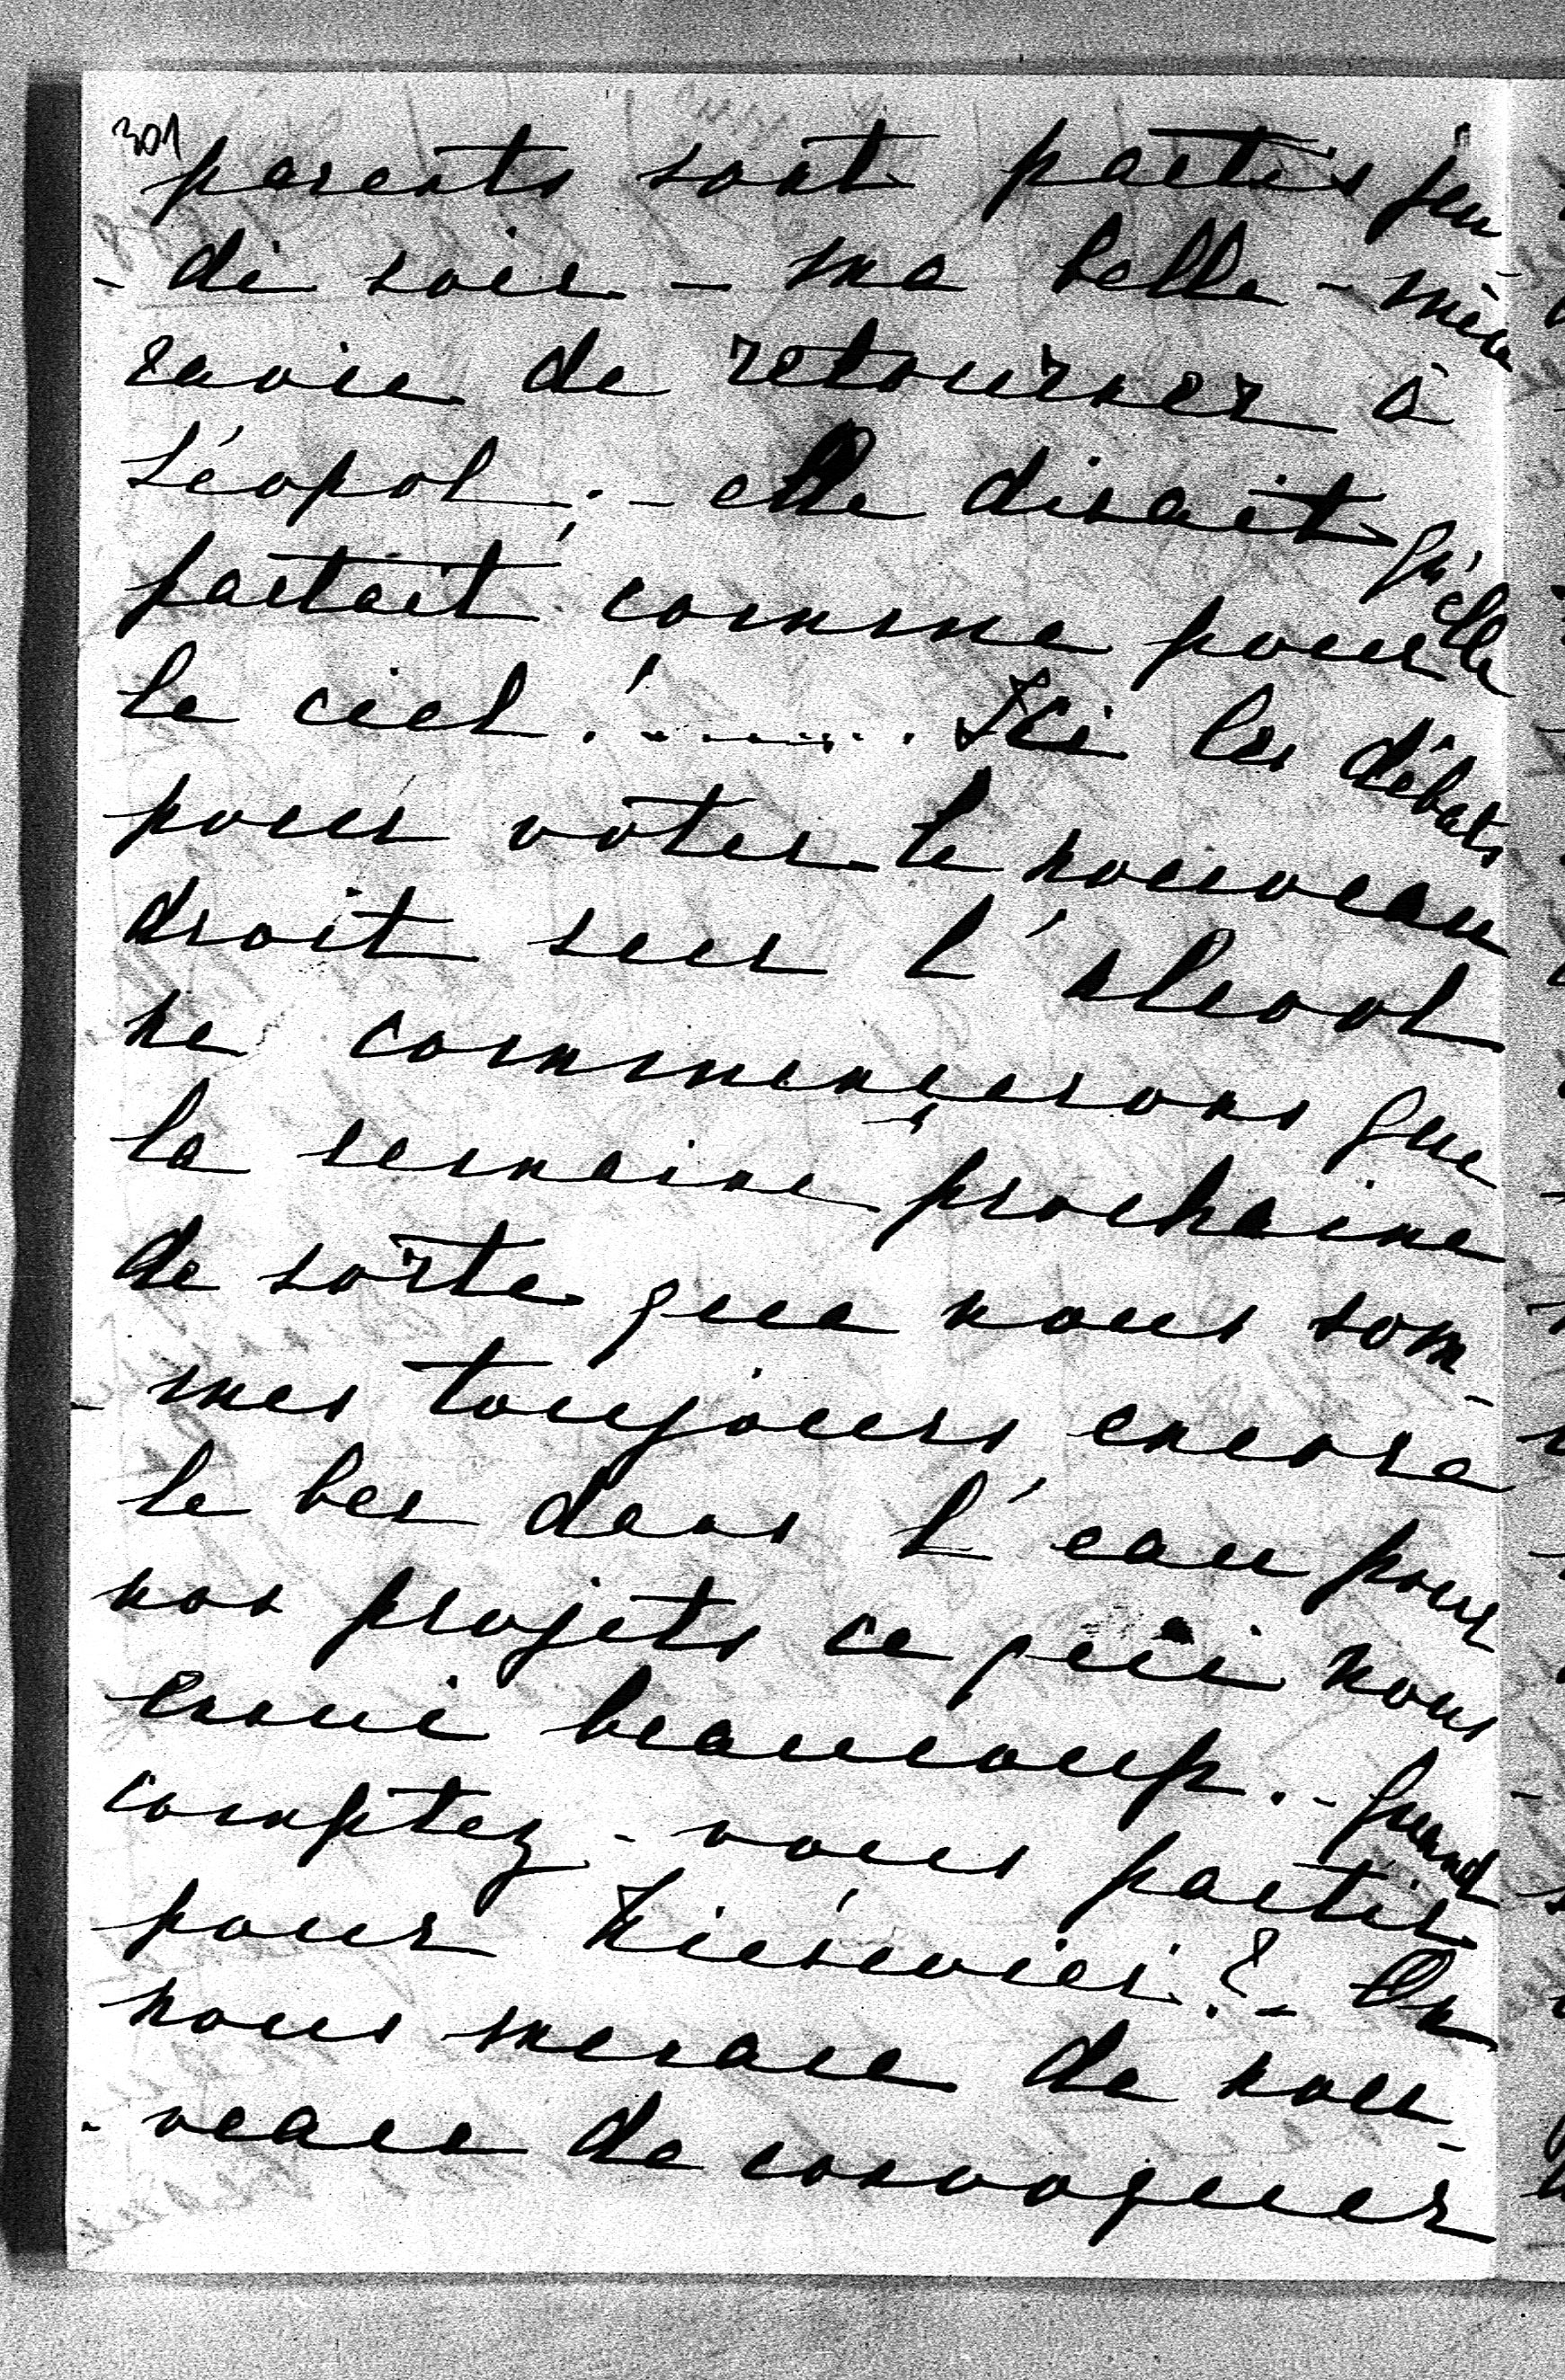 301
parents sont partis jeu
-di soir - ma belle-mère
ravie de retourner à
Léopol; - elle disait qu'elle
partait comme pour
le ciel! ....... Ici les débats
pour voter le nouveau
droit sur l'alcool
ne commencerons que
la semaine prochaine
de sorte que nous som-
-mes toujours encore
le bec dans l'eau pour
nos projets ce qui nous
ennui beaucoup. - Quand
comptez-vous partir
pour ? - On
nous menace de nou-
-veau de convoquer